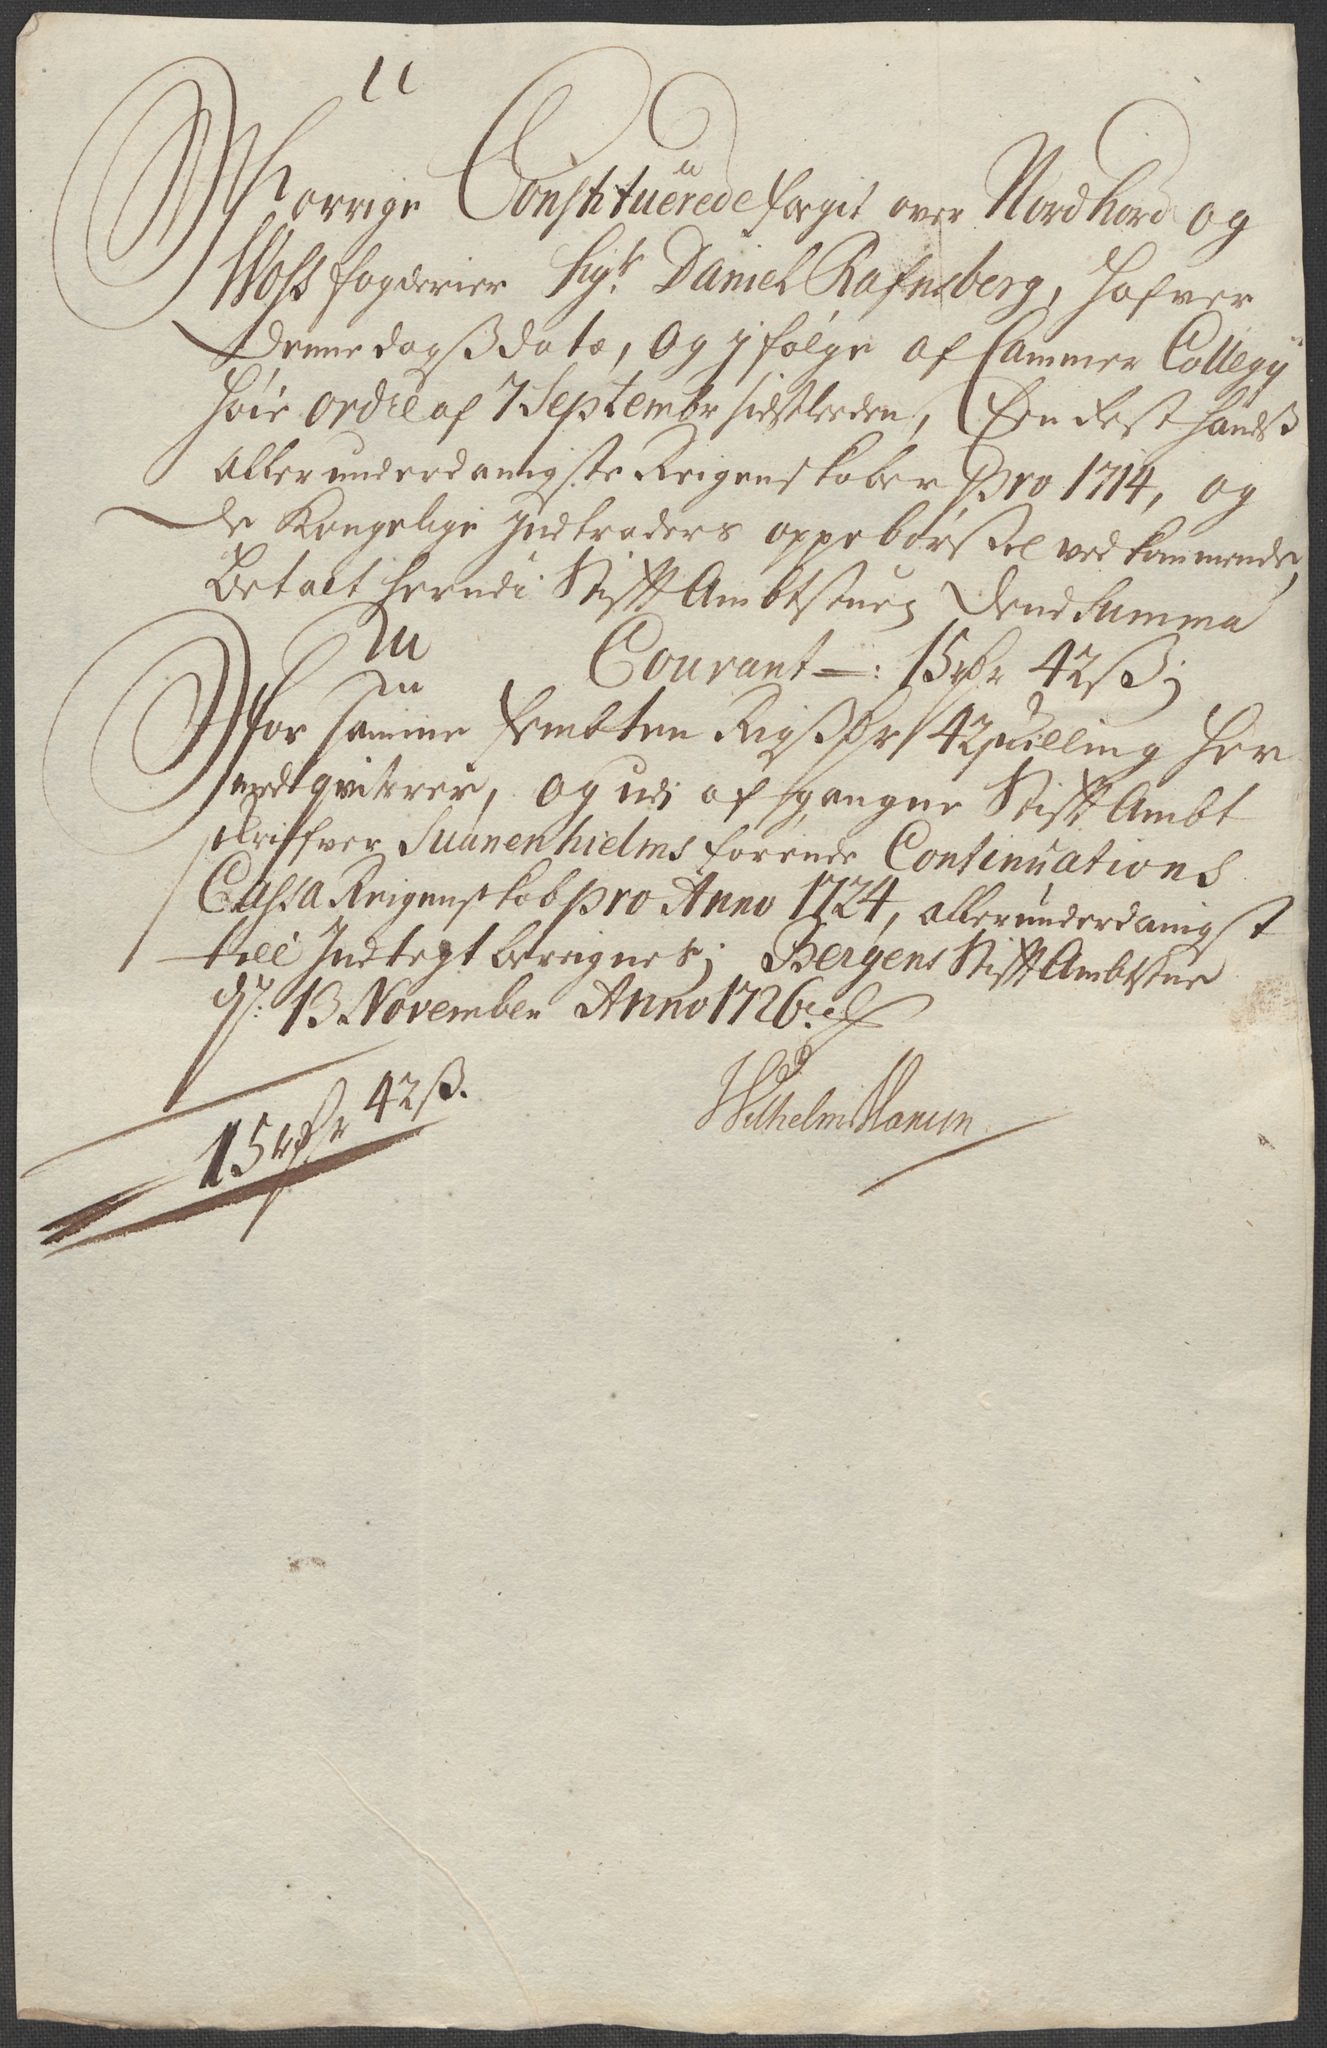 Forrige Constituerede foget over Nordhord og
Woss fogderier Sigr. Daniel Rafnsberg, hafver
denne dagß dato, og i følge af Cammer Collegy
höie ordre af 7 Septembr sidstleeden,
allerunderdanigste Reigenskaber pro 1714, og
de Kongelige Indtraders oppebörsel vedkommende,
betalt herudi Stifft Ambtstuen dend Summa
Courant —: 15 rdr 42 ß;
for samme fembten Rigßdr 42 skilling her
med qvitterer, og udi afgangne Stifft Ambt
skrifver Suanenhielms förende Continuations
Cassa Reigenskab pro Anno 1724, allerunderdanigst
till Indtegt bereignet; Bergens Stifft Ambtstue
d. 13 November Anno 1726
Wilhelm Hansen
15 rdr 42 ß.